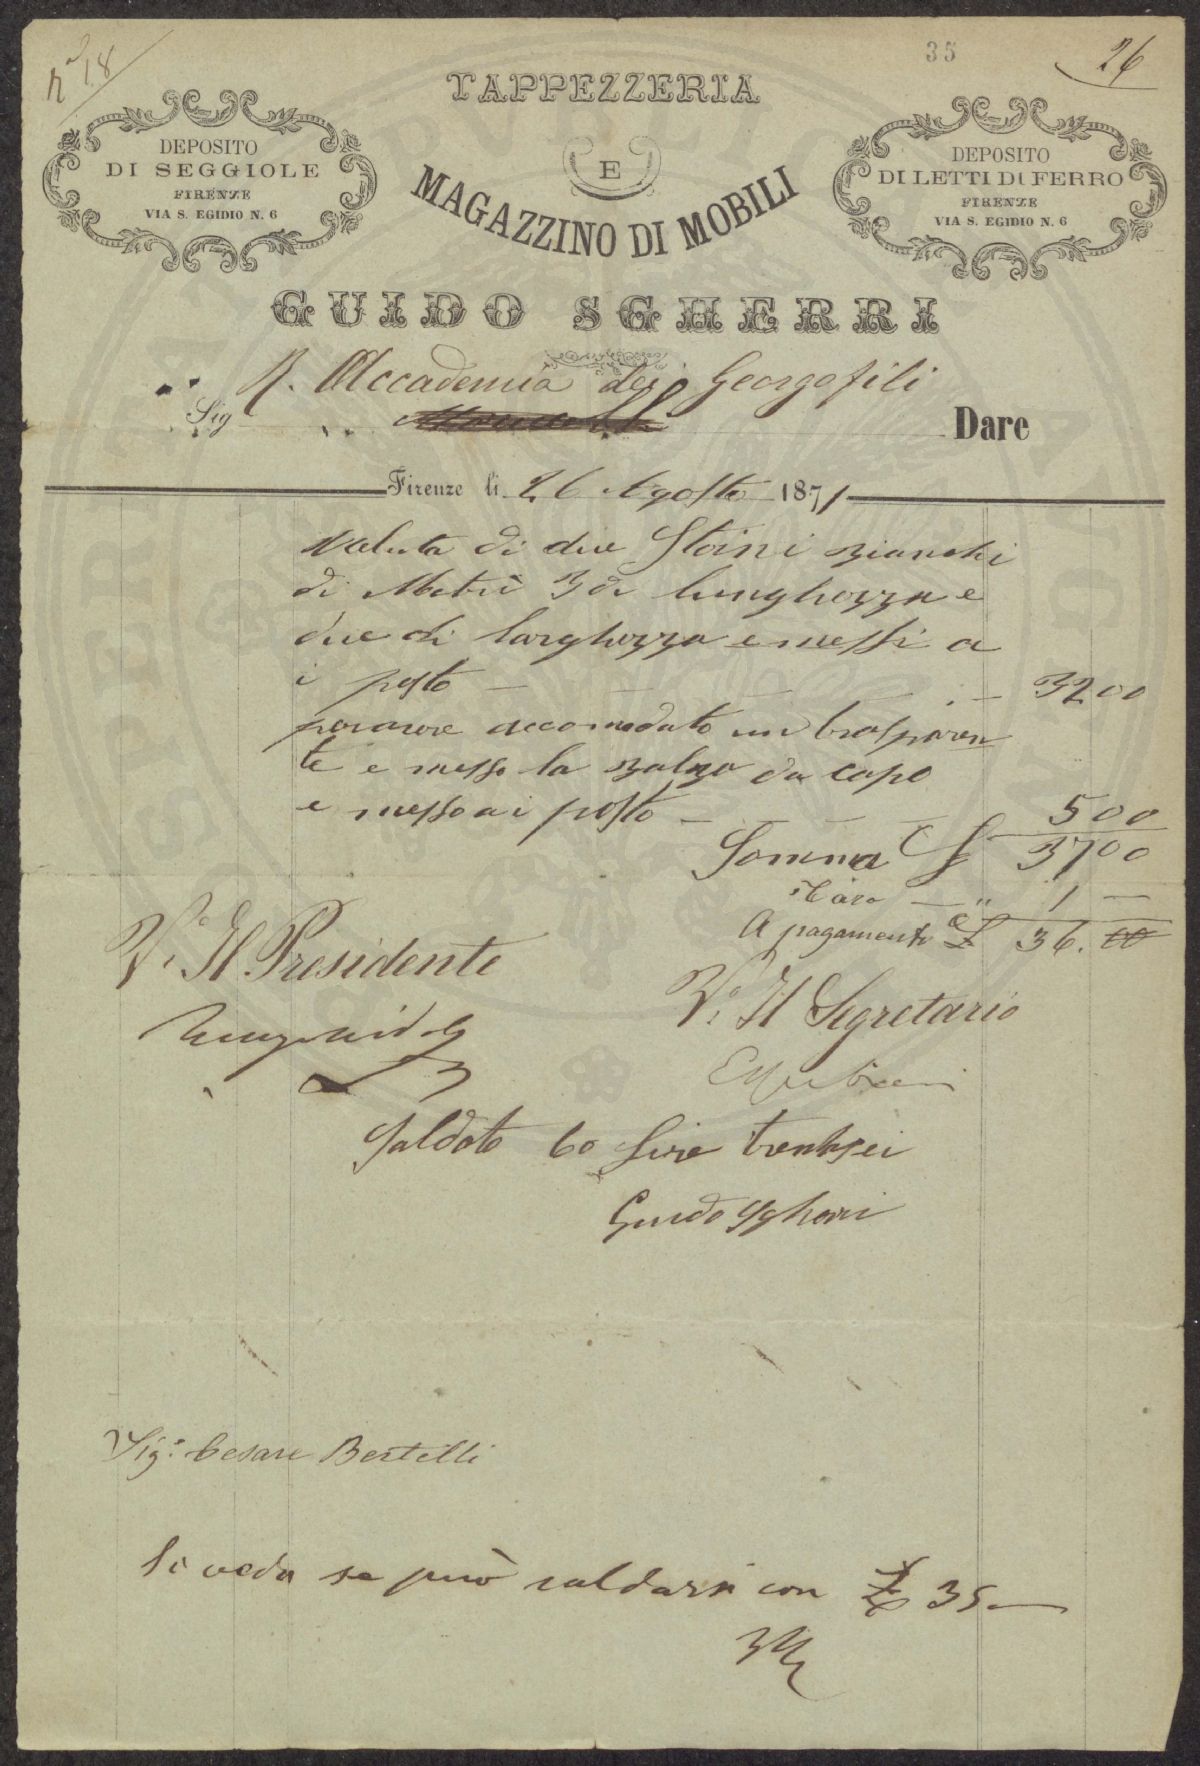 nº 18
35
26
TAPPEZZERIA
E
MAGAZZINO DI MOBILI
DEPOSITO
DI SEGGIOLE
FIRENZE
VIA S. EGIDIO N. 6
DEPOSITO
DI LETTI DI FERRO
FIRENZE
VIA S. EGIDIO N. 6
GUIDO SGHERRI
R. Accademia dei Georgofili
Sig Dare
Firenze li 26 Agosto 1871
Valuta di due Stoini bianchi
di Metri 3 di lunghezza e
due di larghezza e messi a
i posto — 32 00
per avere accomodato un trasparen
te e messo la balza da capo
e messo a i posto — 5 00
Somma £ 37 00
Tara — " 1 —
A pagamento £ 36.
Vº. Il Presidente
Vº. Il Segretario
Saldato co Lire trentasei
Guido Sgherri
Sig.e Cesare Bertelli
Si veda se può saldarsi con £ 35 —